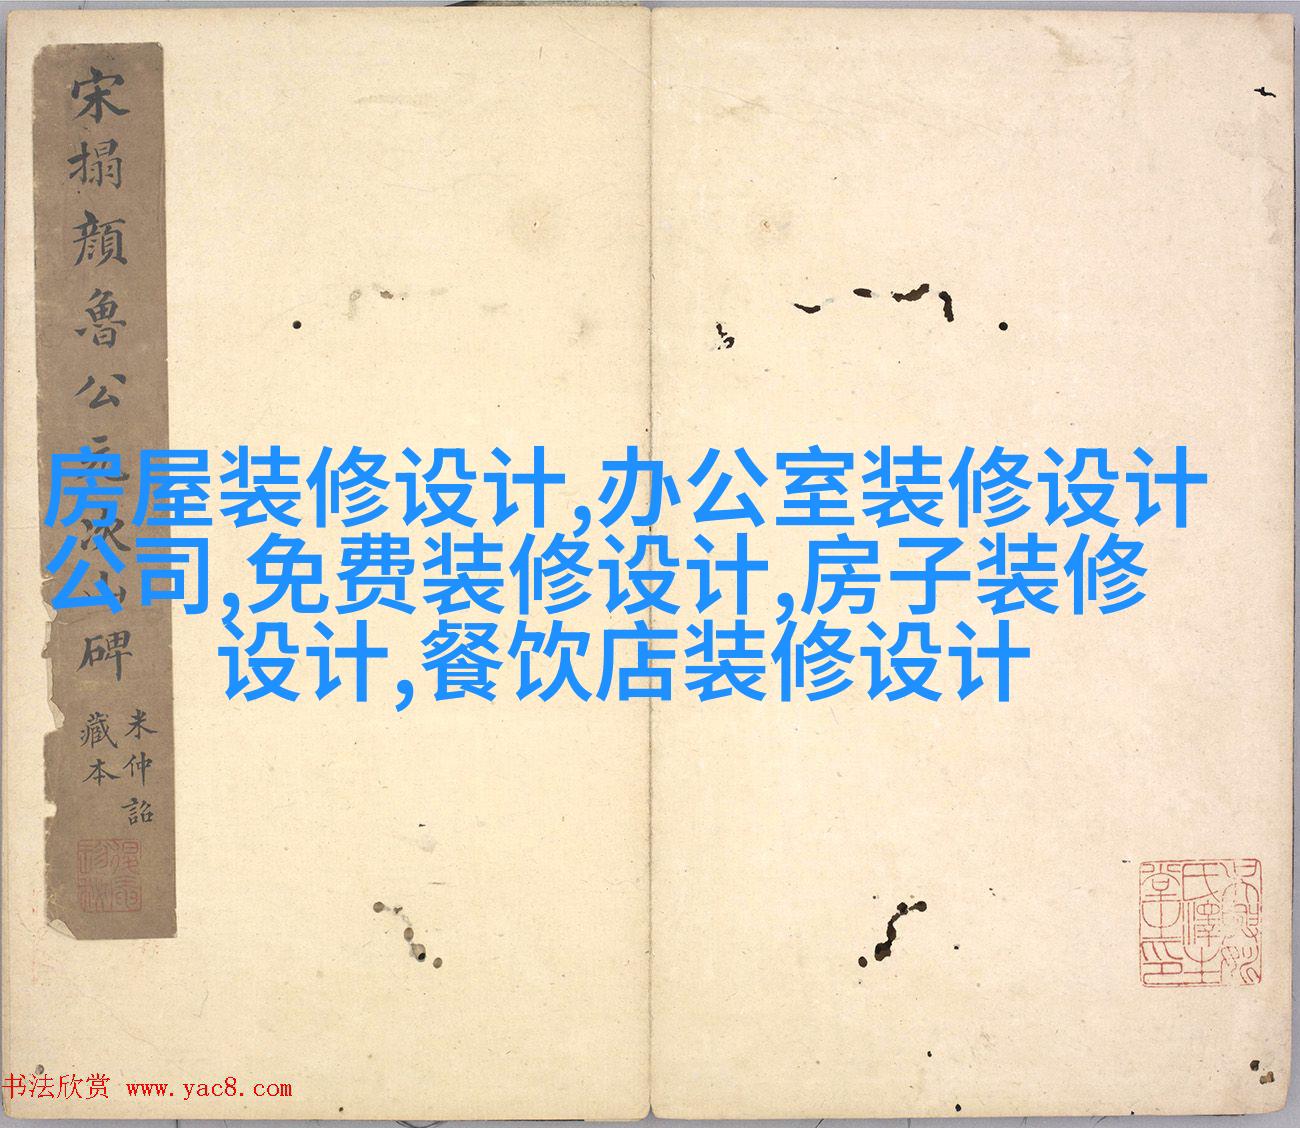 宋搨顏魯公元次山碑
米仲詔
藏本
房屋装修设计,办公室装修设计
公司,免费装修设计,房子装修
设计,餐饮店装修设计
书法欣赏 www.yac8.com